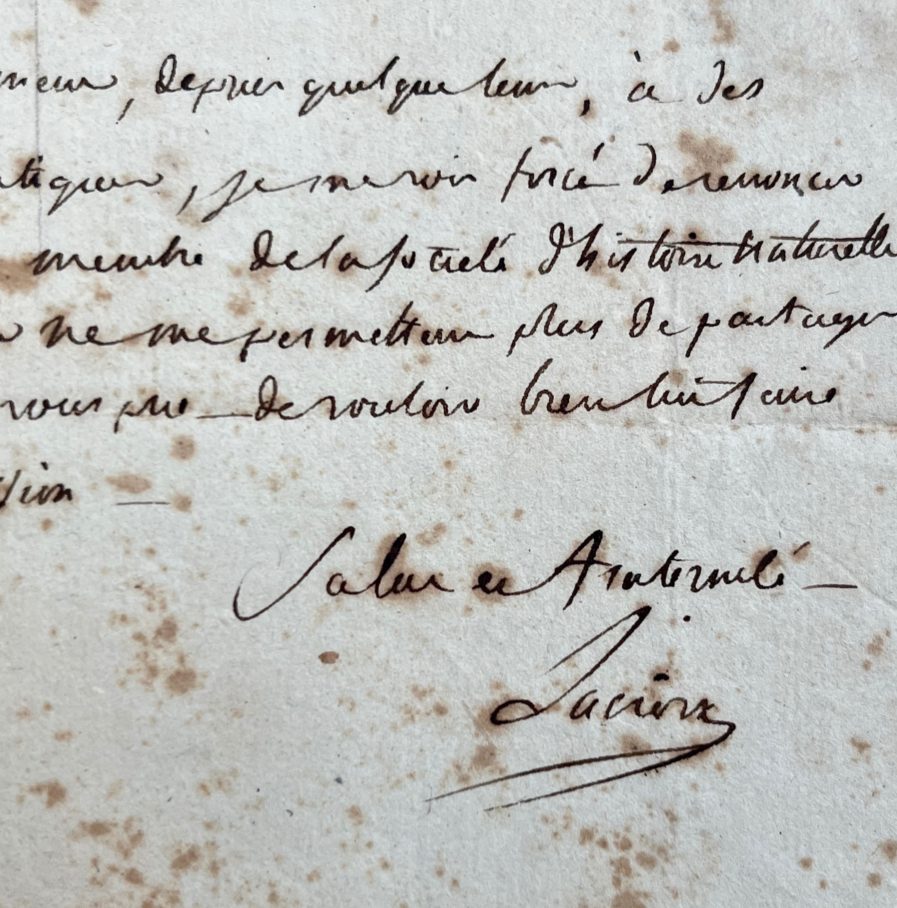 depuis quelque tems, à des
atiques, je me vois forcé de renoncer
membre de la société d'histoire naturelle
ne me permettent plus de partager
vous prie de vouloir bien lui faire
ssion —
Salut et fraternité —
Lacroix